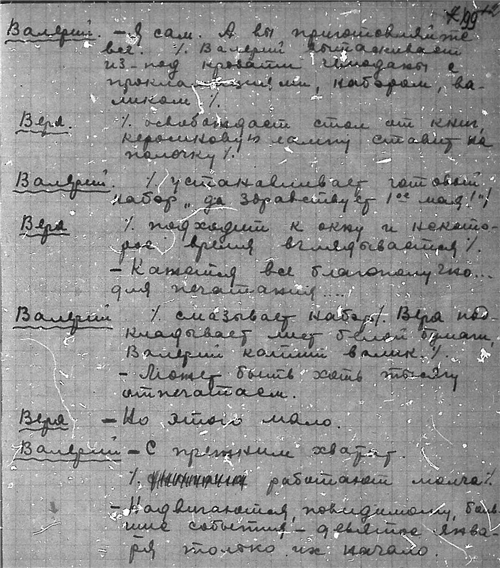 Валерий. – Я сам. А вы приготовляйте
все. /. Валерий вытаскивает
из-под кровати чемоданы с
прокламациями, набором, ва-
ликом /.
Вера. /. освобождает стол от книг,
керосиновую лампу ставит на
полочку /.
Валерий. /. устанавливает готовый
набор „да здравствует 1ое мая!"/
Вера /. подходит к окну и некото-
рое время вглядывается /.
– Кажется все благополучно...
для печатания....
Валерий /. смазывает набор /. Вера под-
кладывает лист белой бумаги,
Валерий катит валик. /.
– Может быть хоть тысячу
отпечатаем.
Вера – Но этого мало.
Валерий – С прежним хватит.
/. работают молча /.
– Надвигаются повидимому, боль-
шие события – девятое янва-
ря только их начало.